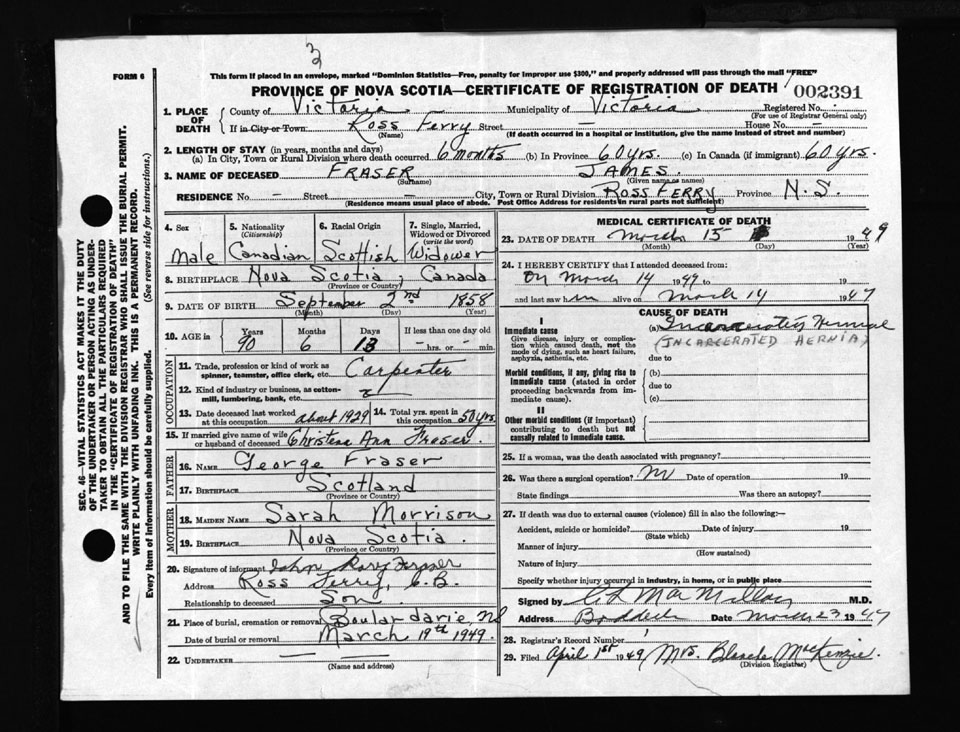 3
FORM 6
This form if placed in an envelope, marked "Dominion Statistics—Free, penalty for improper use $300," and properly addressed will pass through the mail "FREE"
PROVINCE OF NOVA SCOTIA—CERTIFICATE OF REGISTRATION OF DEATH
002391
SEC. 46—VITAL STATISTICS ACT MAKES IT THE DUTY
OF THE UNDERTAKER OR PERSON ACTING AS UNDER-
TAKER TO OBTAIN ALL THE PARTICULARS REQUIRED
IN THE "CERTIFICATE OF REGISTRATION OF DEATH"
AND TO FILE THE SAME WITH THE DIVISION REGISTRAR WHO SHALL ISSUE THE BURIAL PERMIT.
WRITE PLAINLY WITH UNFADING INK. THIS IS A PERMANENT RECORD.
Every item of information should be carefully supplied. (See reverse side for instructions.)
1. PLACE OF DEATH County of Victoria Municipality of Victoria Registered No.
(For use of Registrar General only)
If in City or Town Ross Ferry Street — House No. —
(Name) (If death occurred in a hospital or institution, give the name instead of street and number)
2. LENGTH OF STAY (in years, months and days)
(a) In City, Town or Rural Division where death occurred 6 months (b) In Province 60 yrs. (c) In Canada (if immigrant) 60 yrs.
3. NAME OF DECEASED FRASER JAMES.
(Surname) (Given name or names)
RESIDENCE No — Street — City, Town or Rural Division ROSS FERRY Province N.S.
(Residence means usual place of abode. Post Office Address for residents in rural parts not sufficient)
4. Sex
Male
5. Nationality
(Citizenship)
Canadian
6. Racial Origin
Scottish
7. Single, Married,
Widowed or Divorced
(write the word)
Widower
8. BIRTHPLACE Nova Scotia, Canada
(Province or Country)
9. DATE OF BIRTH September 2nd 1858
(Month) (Day) (Year)
10. AGE in
Years Months Days If less than one day old
90 6 13 — hrs. or — min.
OCCUPATION
11. Trade, profession or kind of work as
spinner, teamster, office clerk, etc. Carpenter
12. Kind of industry or business, as cotton-
mill, lumbering, bank, etc.
13. Date deceased last worked
at this occupation about 1929
14. Total yrs. spent in
this occupation 50 yrs.
15. If married give name of wife
or husband of deceased Christena Ann Fraser.
FATHER
16. NAME George Fraser
17. BIRTHPLACE Scotland
(Province or Country)
MOTHER
18. MAIDEN NAME Sarah Morrison
19. BIRTHPLACE Nova Scotia.
(Province or Country)
20. Signature of informant John Rory Fraser
Address Ross Ferry, C.B.
Relationship to deceased Son.
21. Place of burial, cremation or removal Boulardarie, NS
Date of burial or removal March 19th 1949.
22. UNDERTAKER —
(Name and address)
MEDICAL CERTIFICATE OF DEATH
23. DATE OF DEATH March 15 1949
(Month) (Day) (Year)
24. I HEREBY CERTIFY that I attended deceased from:
On March 14 1947 to 19
and last saw him alive on March 14 1947
CAUSE OF DEATH
I
Immediate cause
Give disease, injury or complica-
tion which caused death, not the
mode of dying, such as heart failure,
asphyxia, asthenia, etc.
(a)
(INCARCERATED HERNIA)
due to
Morbid conditions, if any, giving rise to
immediate cause (stated in order
proceeding backwards from im-
mediate cause).
(b)
due to
(c)
II
Other morbid conditions (if important)
contributing to death but not
causally related to immediate cause.
25. If a woman, was the death associated with pregnancy?
26. Was there a surgical operation? Date of operation 19
State findings Was there an autopsy?
27. If death was due to external causes (violence) fill in also the following:—
Accident, suicide or homicide? Date of injury 19
(State which)
Manner of injury
(How sustained)
Nature of injury
Specify whether injury occurred in industry, in home, or in public place
Signed by C L MacMillan M.D.
Address Baddeck Date March 23 1947
28. Registrar's Record Number 1
29. Filed April 1st 1949 Mrs. Blanche MacKenzie.
(Division Registrar)